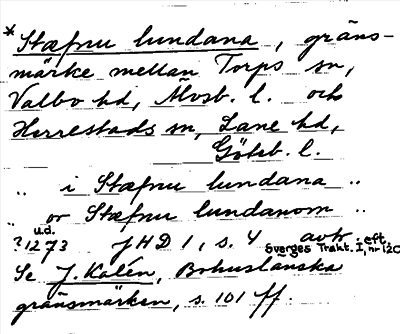 *Stæfnu lundana, gräns-
märke mellan Torps sn,
Valbo hd, Älvsb. l. och
Herrestads sn, Lane hd,
Göteb. l.
.. i Stæfnu lundana ..
.. or Stæfnu lundanom ..
u.d.
?1273 JHD 1, s. 4 avtr. i eft.
Sverges Trakt. I, nr 120
Se J. Kalén, Bohuslänska
gränsmärken, s. 101 ff.